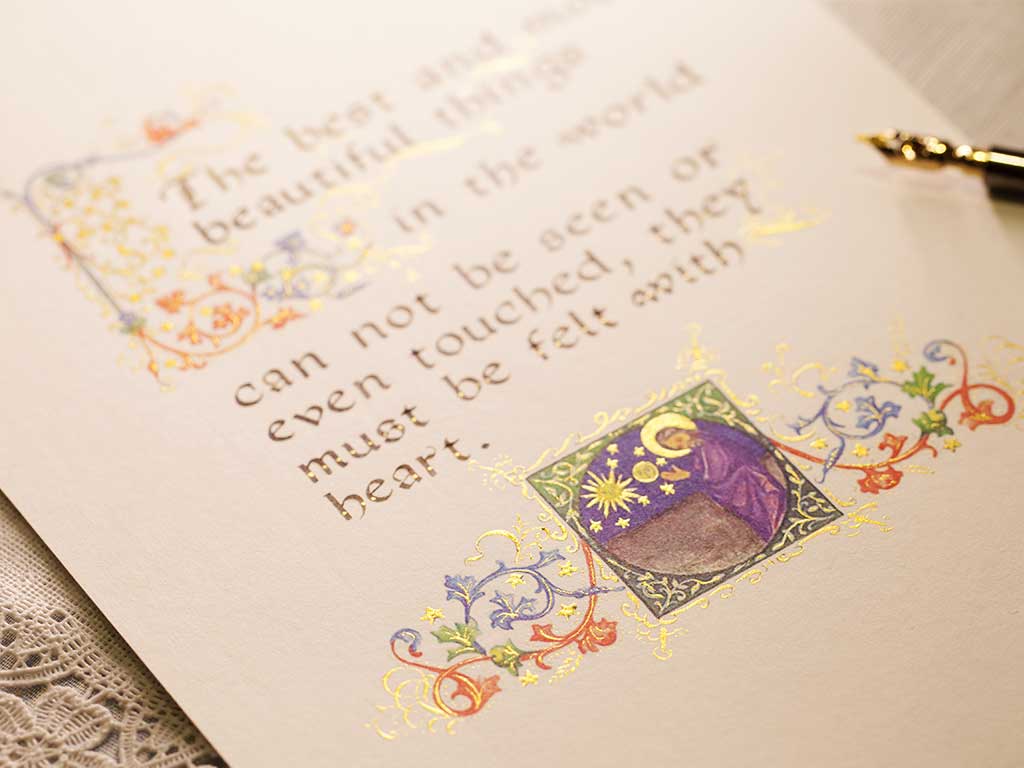 The best and most
beautiful things
in the world
can not be seen or
even touched, they
must be felt with
heart.